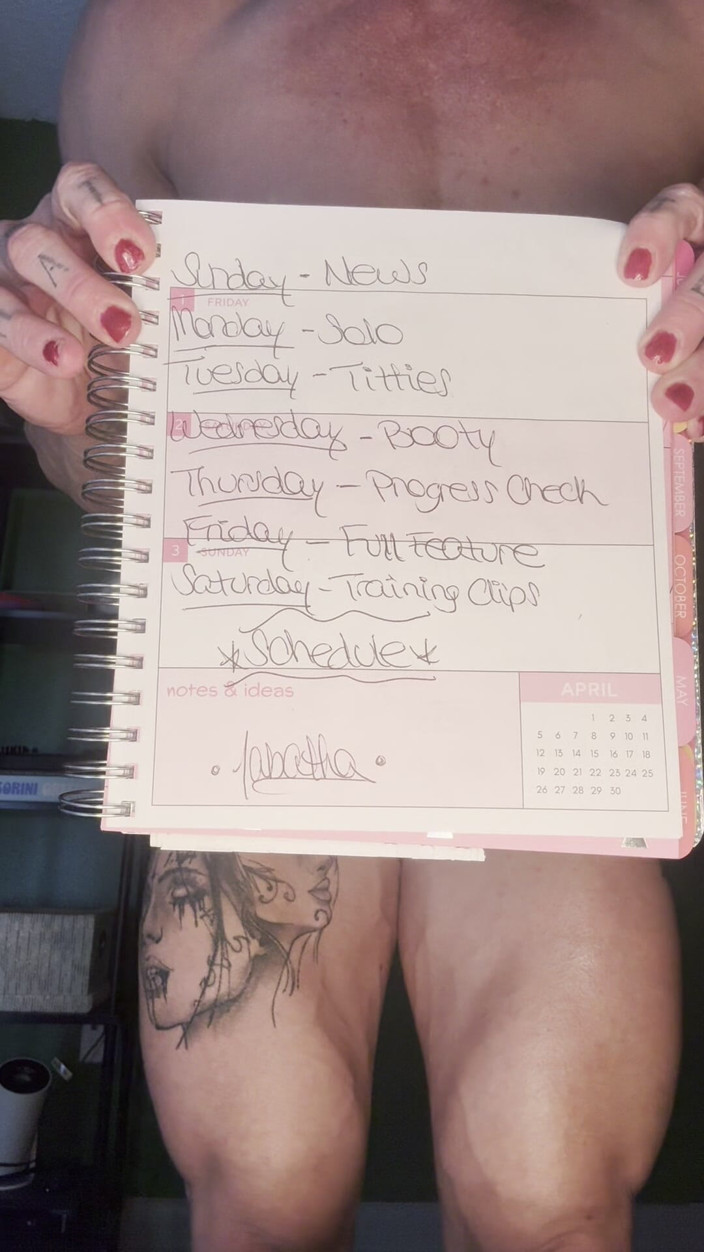 T
A
Sunday - News
1 FRIDAY
Monday - Solo
Tuesday - Titties
Wednesday - Booty
Thursday - Progress Check
Friday - Full Feature
3 SUNDAY
Saturday - Training Clips
*Schedule*
notes & ideas
Tabatha
APRIL
1 2 3 4
5 6 7 8 9 10 11
12 13 14 15 16 17 18
19 20 21 22 23 24 25
26 27 28 29 30
SEPTEMBER
OCTOBER
MAY
JUNE